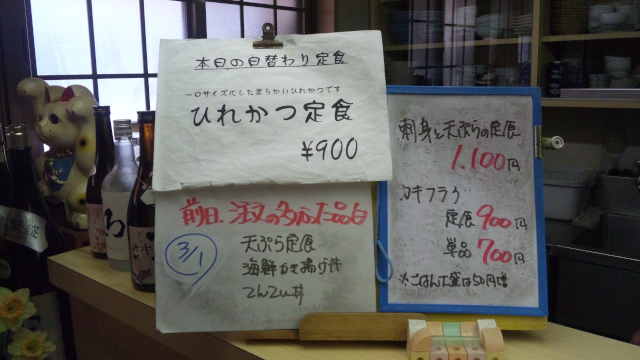 本日の日替わり定食
一口サイズにした柔らかいひれかつです
ひれかつ定食
¥900
前日、注文の多かった品目
3/1
天ぷら定食
海鮮かき揚げ丼
てんてん丼
刺身と天ぷらの定食
1,100円
カキフライ
定食 900円
単品 700円
※ごはん大盛は50円増